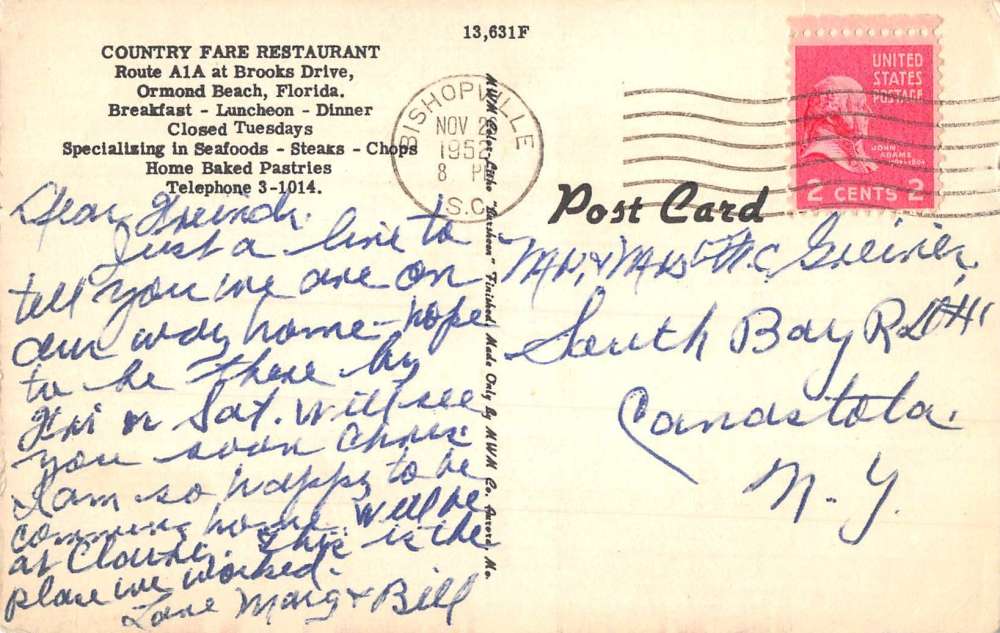 13,631F
COUNTRY FARE RESTAURANT
Route A1A at Brooks Drive,
Ormond Beach, Florida.
Breakfast - Luncheon - Dinner
Closed Tuesdays
Specializing in Seafoods - Steaks - Chops
Home Baked Pastries
Telephone 3-1014.
BISHOPVILLE
NOV 2
195
8 P
S.C.
UNITED
STATES
POSTAGE
JOHN
ADAMS
2 CENTS 2
Post Card
MWM Color-Litho "Finished. Made Only By MWM Co. Aurora, Mo.
Dear Freinds.
Just a line to
tell you we are on
our way home - hope
to be there by
Fri or Sat. will see
you soon
I am so happy to be
comming home. Will be
at This is the
place we worked.
Love Marg & Bill
Mr. & Mrs. Greiner,
South Bay RD #1
Canastota.
N.Y.